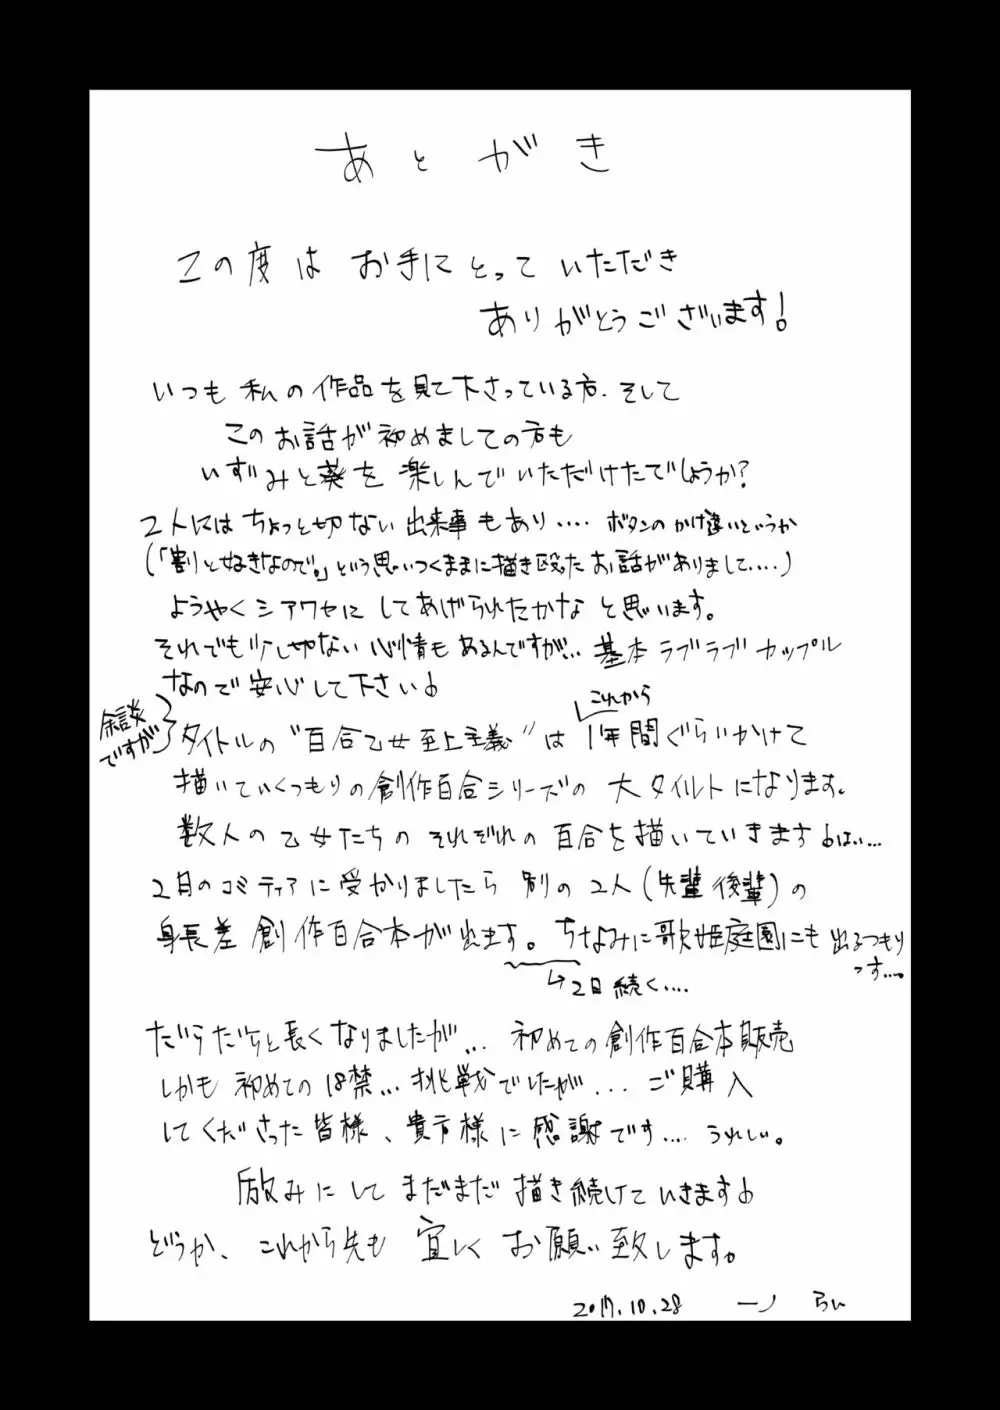 あとがき
この度は お手にとって いただき
ありがとうございます!
いつも 私の作品を見て下さっている方、そして
このお話が初めましての方も
いずみと葵を 楽しんでいただけたでしょうか?
2人にはちょっと切ない出来事もあり.... ボタンのかけ違いというか
(「割と好きなので。」という思いつくままに描き殴たお話がありまして....)
ようやくシアワセに してあげられたかな と思います。
それでも少し切ない心情もあるんですが... 基本ラブラブカップル
なので安心して下さい♪
余談
ですが
これから
タイトルの“百合乙女至上主義”は 1年間ぐらいかけて
描いていくつもりの創作百合シリーズの 大タイルトになります。
数人の乙女たちの それぞれの百合を描いていきます♪はい...
2月のコミティアに受かりましたら 別の2人(先輩後輩)の
身長差創作百合本が出ます。ちなみに歌姫庭園にも 出るつもり
っす....。
→2日続く....
だらだらと長くなりましたが... 初めての創作百合本販売
しかも 初めての18禁... 挑戦でしたが... ご購入
してくださった皆様、貴方様に感謝です.... うれしい。
励みにして まだまだ 描き続けていきます♪
どうか、これから先も 宜しくお願い致します。
2017.10.28 一ノ